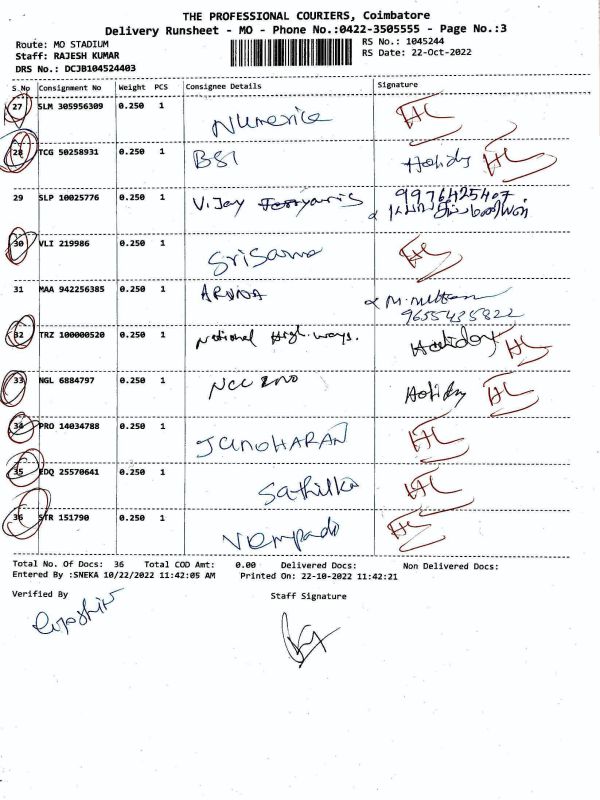 THE PROFESSIONAL COURIERS, Coimbatore
Delivery Runsheet - MO - Phone No.:0422-3505555 - Page No.:3
Route: MO STADIUM
Staff: RAJESH KUMAR
DRS No.: DCJB104524403
RS No.: 1045244
RS Date: 22-Oct-2022
S.No Consignment No Weight PCS Consignee Details Signature
27 SLM 305956309 0.250 1 Numerica HL
28 TCG 50258931 0.250 1 BSI Holiday HL
29 SLP 10025776 0.250 1 V.Jay 9976425407
30 VLI 219986 0.250 1 Srisarma HL
31 MAA 942256385 0.250 1 ARUNA
9655435822
32 TRZ 100000520 0.250 1 National High.ways. Holiday HL
33 NGL 6884797 0.250 1 NCC 2no Holiday HL
34 PRO 14034788 0.250 1 JANOHARAN HL
35 EDQ 25570641 0.250 1 Sathilka HL
36 STR 151790 0.250 1 HL
Total No. Of Docs: 36 Total COD Amt: 0.00 Delivered Docs: Non Delivered Docs:
Entered By :SNEKA 10/22/2022 11:42:05 AM Printed On: 22-10-2022 11:42:21
Verified By Staff Signature